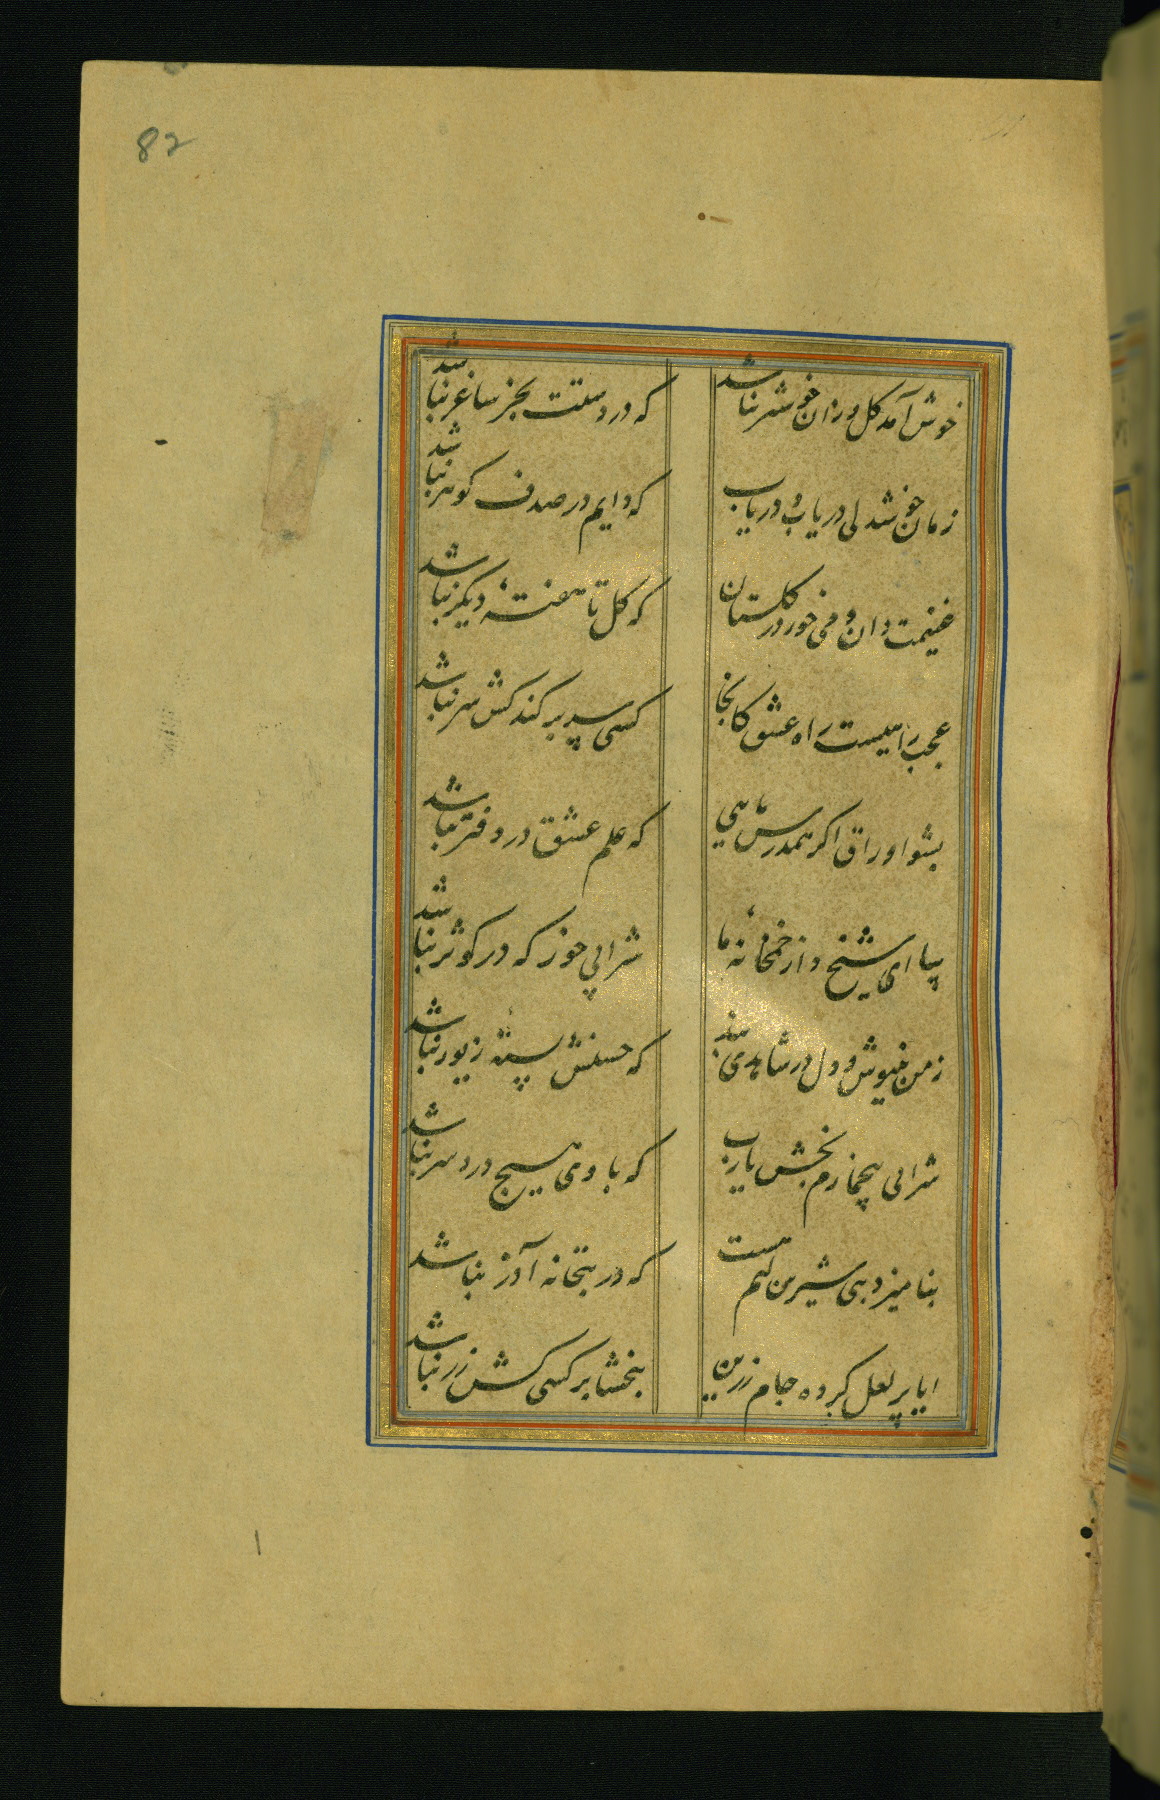 82
خوش آمد گل وزان خوشتر نباشد
که در دستت بجز ساغر نباشد
زمان خوشدلی دریاب و دریاب
که دایم در صدف گوهر نباشد
غنیمت دان و می خور در گلستان
که گل تا هفتهٔ دیگر نباشد
عجب راهیست راه عشق کانجا
کسی سر بر کند کش سر نباشد
بشو اوراق اگر همدرس مایی
که علم عشق در دفتر نباشد
بیا ای شیخ و از خمخانهٔ ما
شرابی خور که در کوثر نباشد
ز من بنیوش و دل در شاهدی بند
که حسنش بستهٔ زیور نباشد
شرابی بی‌خمارم بخش یارب
که با وی هیچ درد سر نباشد
بنامیزد بتی شیرین لبم هست
که در بتخانهٔ آذر نباشد
ایا پر لعل کرده جام زرین
ببخشا بر کسی کش زر نباشد